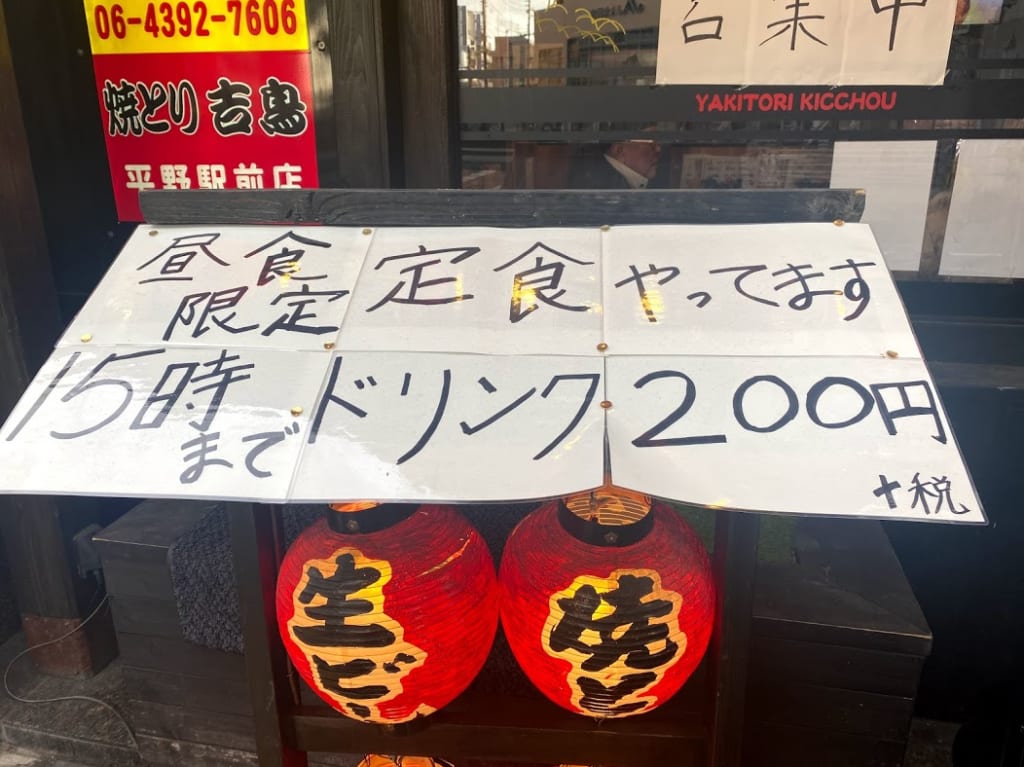 06-4392-7606
焼とり 吉鳥
平野駅前店
営業中
YAKITORI KICCHOU
昼食限定 定食 やってます
15時まで ドリンク 200円
+税
生ビ
焼と